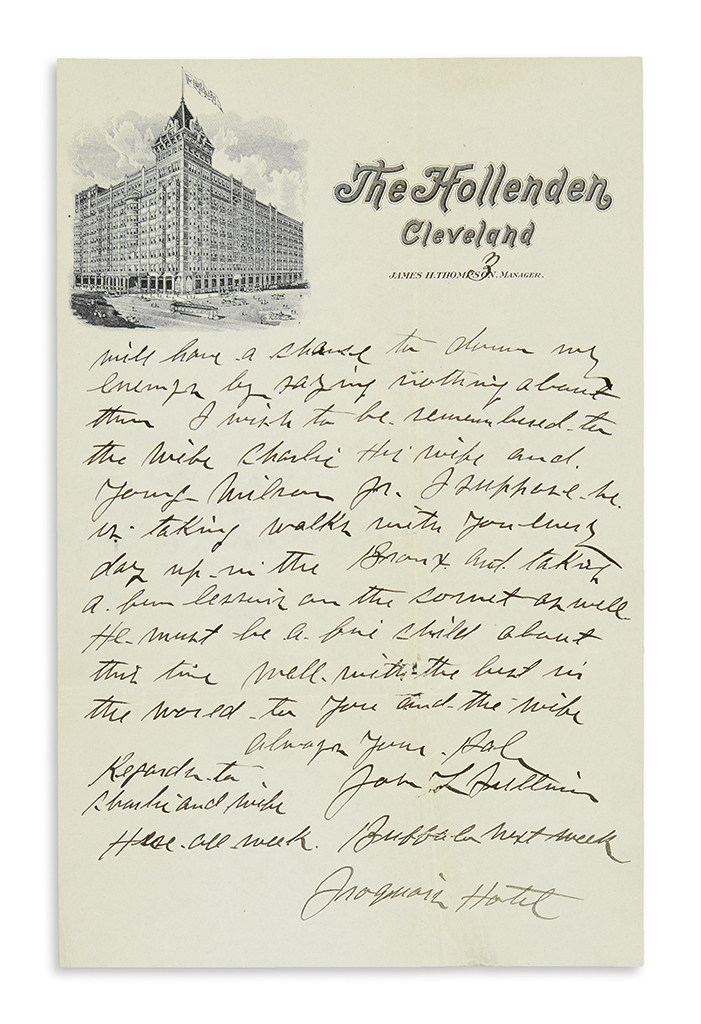 The Hollenden
Cleveland
3
JAMES H. THOMPSON, MANAGER.
will have a chanse to down my
enemys by saying nothing about
them I wish to be remembered to
the wife Charlie His wife and
Young Wilson Jr. I suppose he
is taking walks with You every
day up in the Bronx and taking
a few lessons on the cornet as well
He must be a fine child about
this time Well with the best in
the world to You and the wife
always Your Pal
John L Sullivan
Regards to
Charlie and wife
Here all week. Buffalo next week
Iroquois Hotel